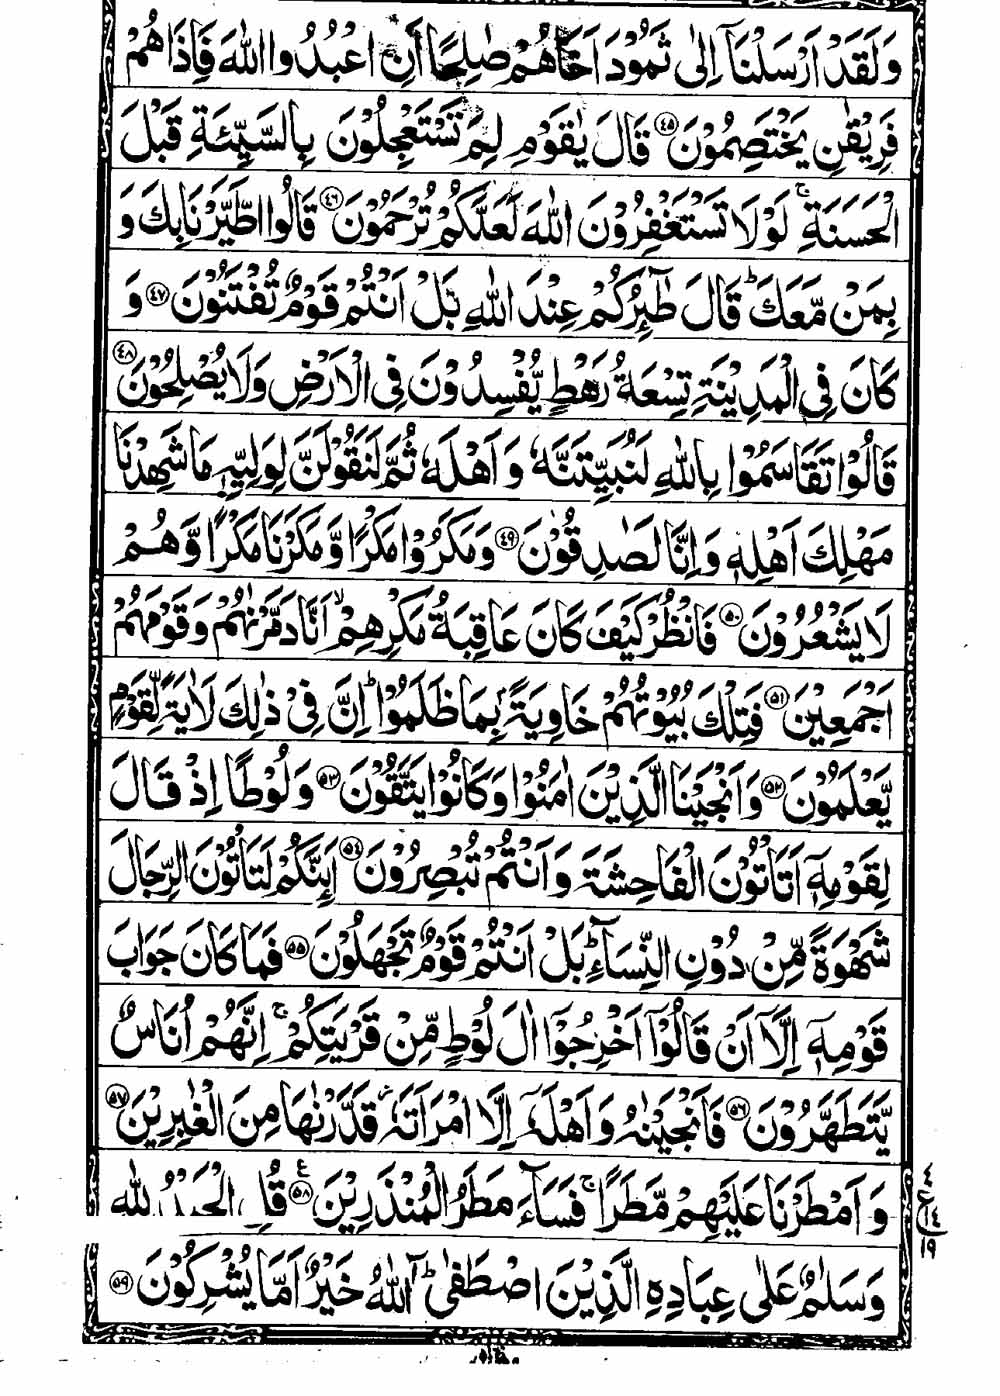 وَلَقَدْ اَرْسَلْنَاۤ اِلٰى ثَمُوْدَ اَخَاهُمْ صٰلِحًا اَنِ اعْبُدُوا اللّٰهَ فَاِذَا هُمْ
فَرِيْقٰنِ يَخْتَصِمُوْنَ ﴿٤٥﴾ قَالَ يٰقَوْمِ لِمَ تَسْتَعْجِلُوْنَ بِالسَّيِّئَةِ قَبْلَ
الْحَسَنَةِ ۚ لَوْلَا تَسْتَغْفِرُوْنَ اللّٰهَ لَعَلَّكُمْ تُرْحَمُوْنَ ﴿٤٦﴾ قَالُوا اطَّيَّرْنَا بِكَ وَ
بِمَنْ مَّعَكَ ؕ قَالَ طٰٓئِرُكُمْ عِنْدَ اللّٰهِ بَلْ اَنْتُمْ قَوْمٌ تُفْتَنُوْنَ ﴿٤٧﴾ وَ
كَانَ فِى الْمَدِيْنَةِ تِسْعَةُ رَهْطٍ يُّفْسِدُوْنَ فِى الْاَرْضِ وَلَا يُصْلِحُوْنَ ﴿٤٨﴾
قَالُوْا تَقَاسَمُوْا بِاللّٰهِ لَنُبَيِّتَنَّهٗ وَ اَهْلَهٗ ثُمَّ لَنَقُوْلَنَّ لِوَلِيِّهٖ مَا شَهِدْنَا
مَهْلِكَ اَهْلِهٖ وَ اِنَّا لَصٰدِقُوْنَ ﴿٤٩﴾ وَمَكَرُوْا مَكْرًا وَّمَكَرْنَا مَكْرًا وَّهُمْ
لَا يَشْعُرُوْنَ ﴿٥٠﴾ فَانْظُرْ كَيْفَ كَانَ عَاقِبَةُ مَكْرِهِمْ ۙ اَنَّا دَمَّرْنٰهُمْ وَقَوْمَهُمْ
اَجْمَعِيْنَ ﴿٥١﴾ فَتِلْكَ بُيُوْتُهُمْ خَاوِيَةًۢ بِمَا ظَلَمُوْا ؕ اِنَّ فِىْ ذٰلِكَ لَاٰيَةً لِّقَوْمٍ
يَّعْلَمُوْنَ ﴿٥٢﴾ وَاَنْجَيْنَا الَّذِيْنَ اٰمَنُوْا وَكَانُوْا يَتَّقُوْنَ ﴿٥٣﴾ وَلُوْطًا اِذْ قَالَ
لِقَوْمِهٖۤ اَتَاْتُوْنَ الْفَاحِشَةَ وَ اَنْتُمْ تُبْصِرُوْنَ ﴿٥٤﴾ اَئِنَّكُمْ لَتَاْتُوْنَ الرِّجَالَ
شَهْوَةً مِّنْ دُوْنِ النِّسَآءِ ؕ بَلْ اَنْتُمْ قَوْمٌ تَجْهَلُوْنَ ﴿٥٥﴾ فَمَا كَانَ جَوَابَ
قَوْمِهٖۤ اِلَّاۤ اَنْ قَالُوْۤا اَخْرِجُوْۤا اٰلَ لُوْطٍ مِّنْ قَرْيَتِكُمْ ۚ اِنَّهُمْ اُنَاسٌ
يَّتَطَهَّرُوْنَ ﴿٥٦﴾ فَاَنْجَيْنٰهُ وَ اَهْلَهٗۤ اِلَّا امْرَاَتَهٗ ؗ قَدَّرْنٰهَا مِنَ الْغٰبِرِيْنَ ﴿٥٧﴾
وَ اَمْطَرْنَا عَلَيْهِمْ مَّطَرًا ۚ فَسَآءَ مَطَرُ الْمُنْذَرِيْنَ ﴿٥٨﴾ ع قُلِ الْحَمْدُ لِلّٰهِ
ع
١٤
١٩
وَسَلٰمٌ عَلٰى عِبَادِهِ الَّذِيْنَ اصْطَفٰى ؕ آٰللّٰهُ خَيْرٌ اَمَّا يُشْرِكُوْنَ ﴿٥٩﴾